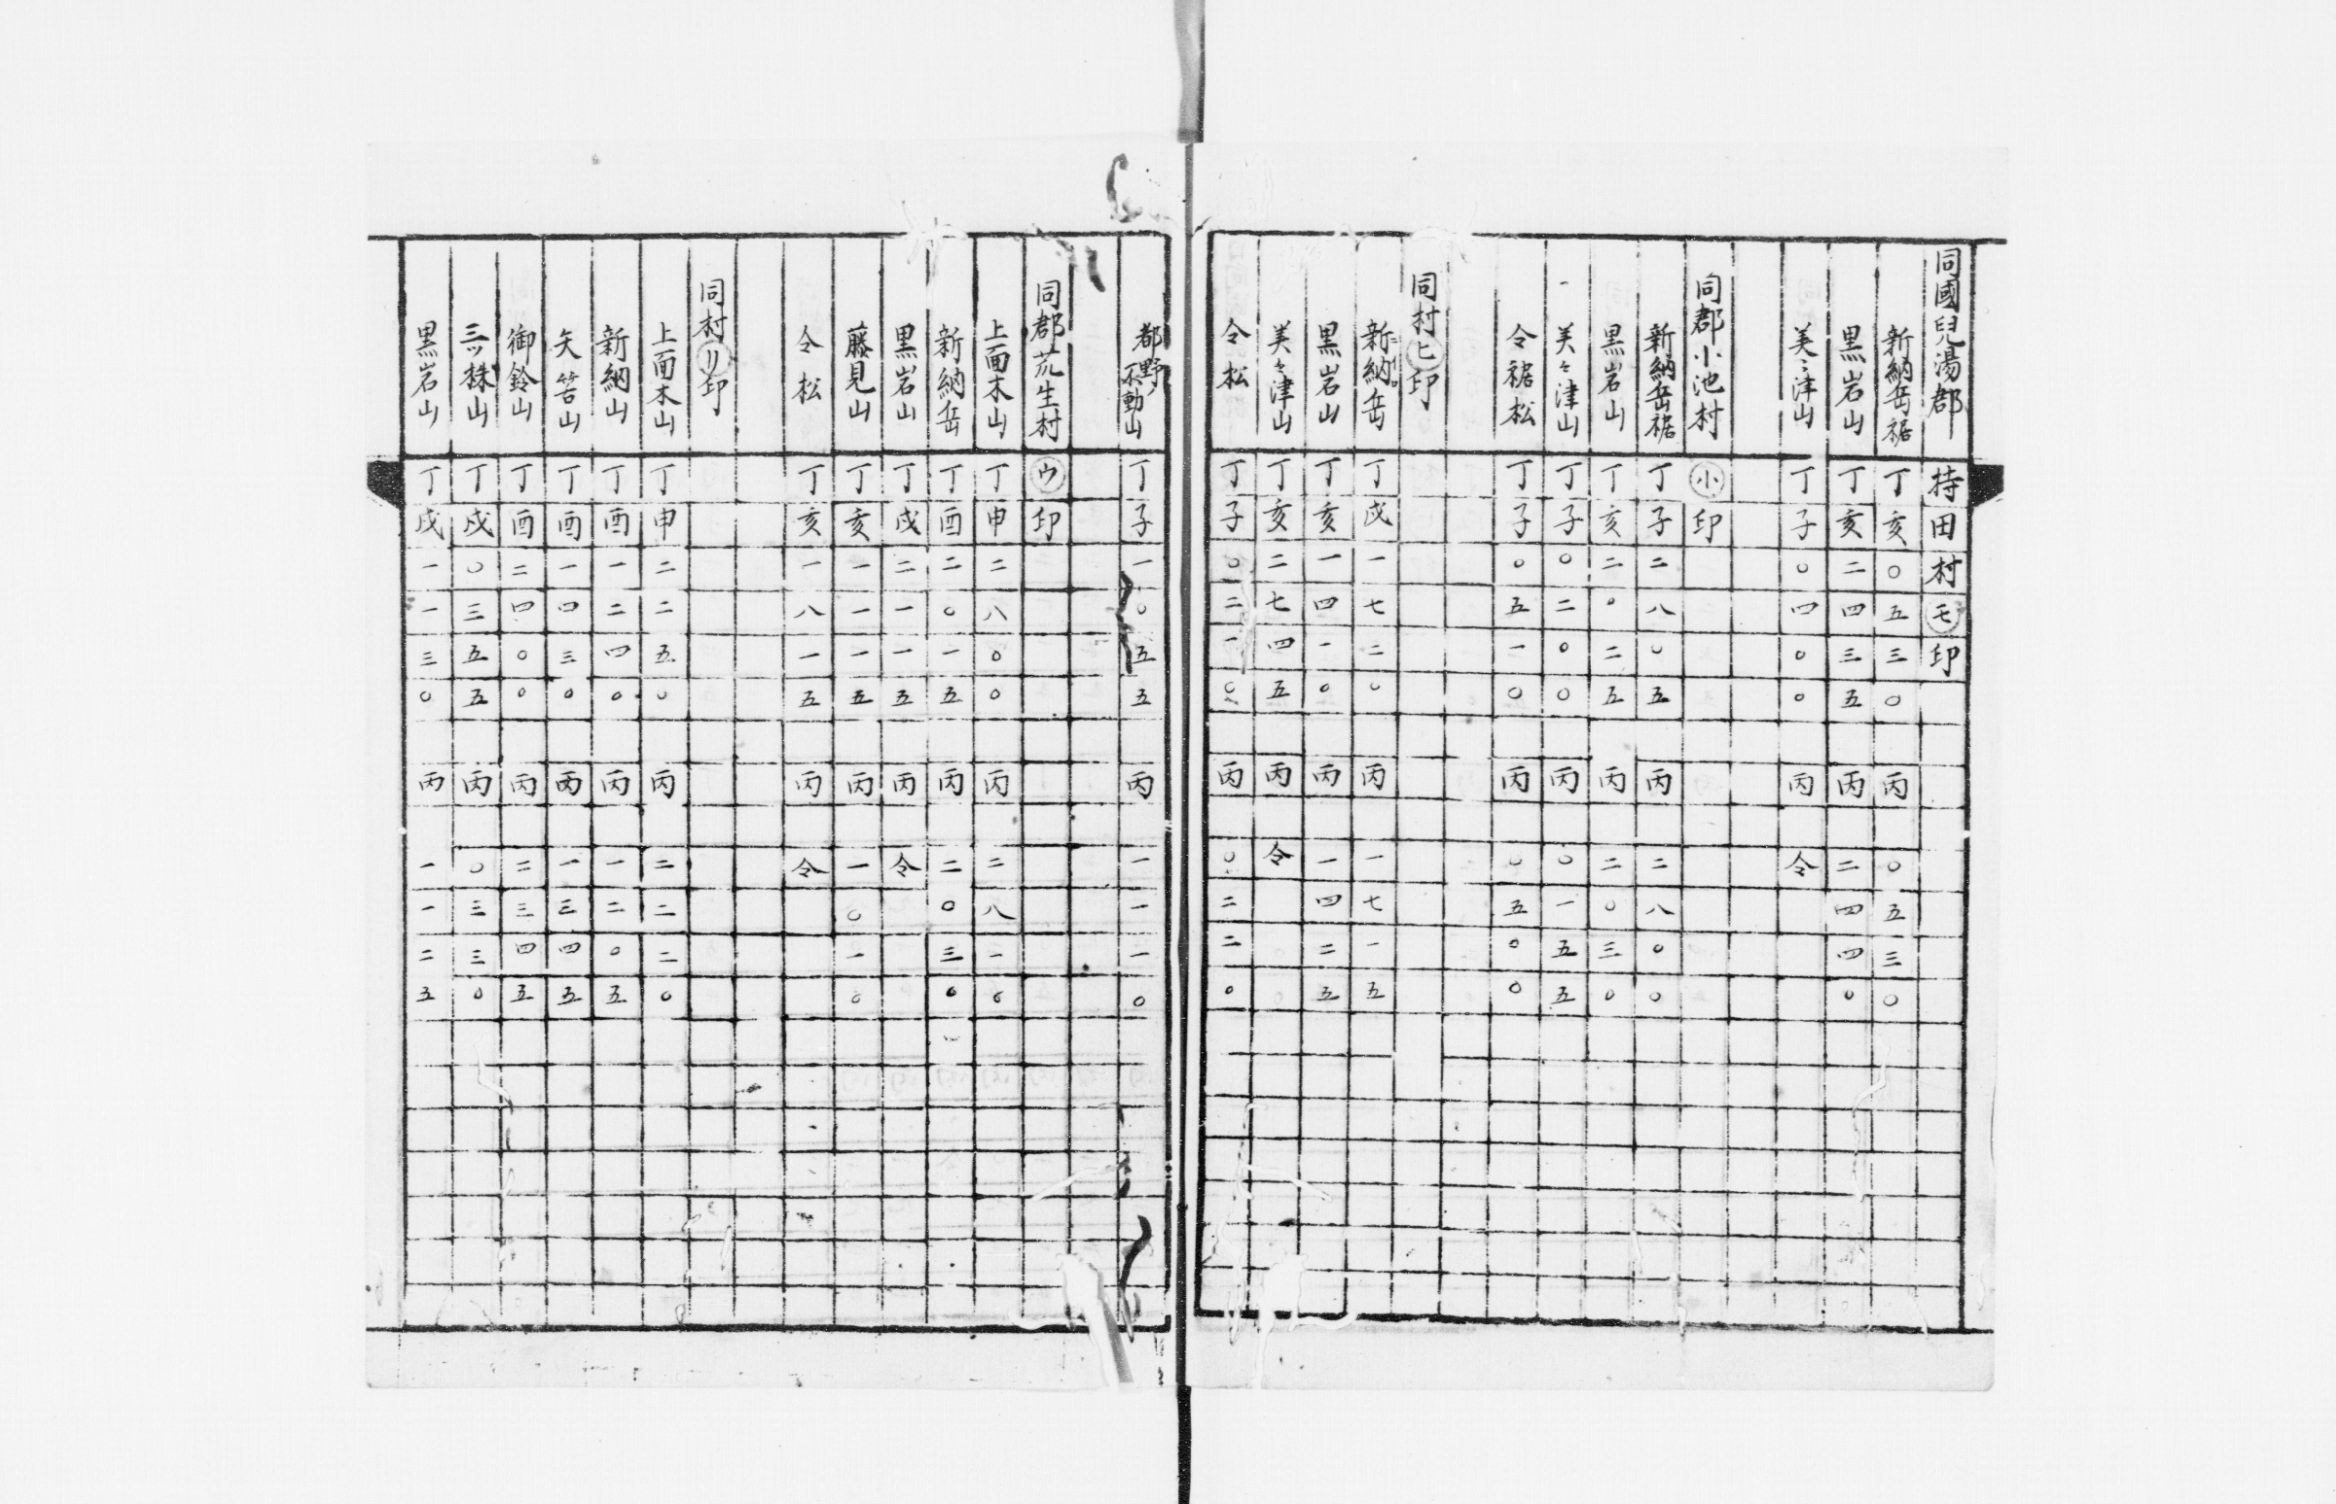 同國兒湯郡持田村㋲印
新納岳裾丁亥〇五三〇丙〇五三〇
黒岩山丁亥二四三五丙二四四〇
美〻津山丁子〇四〇〇丙令
同郡小池村㋛印
新納岳裾丁子二八〇五丙二八〇〇
黒岩山丁亥二〇二五丙二〇三〇
美々津山丁子〇二〇〇丙〇一五五
令裾松丁子〇五一〇丙〇五〇〇
同村㋪印
新納岳丁戌一七二〇丙一七一五
黒岩山丁亥一四一〇丙一四二五
美々津山丁亥二七四五丙令
令松丁子〇二一〇丙〇二二〇
都野ノ不動山丁子一〇五五丙一一一〇
同郡荒生村㋒印
上面木山丁申二八〇〇丙二八一〇
新納岳丁酉二〇一五丙二〇三〇
黒岩山丁戌二一一五丙令
藤見山丁亥一一一五丙一〇一〇
令松丁亥一八一五丙令
同村㋷印
上面木山丁申二二五〇丙二二二〇
新納山丁酉一二四〇丙一二〇五
矢筈山丁酉一四三〇丙一三四五
御鈴山丁酉二四〇〇丙二三四五
三ッ株山丁戌〇三五五丙〇三三〇
黒岩山丁戌一一三〇丙一一二五